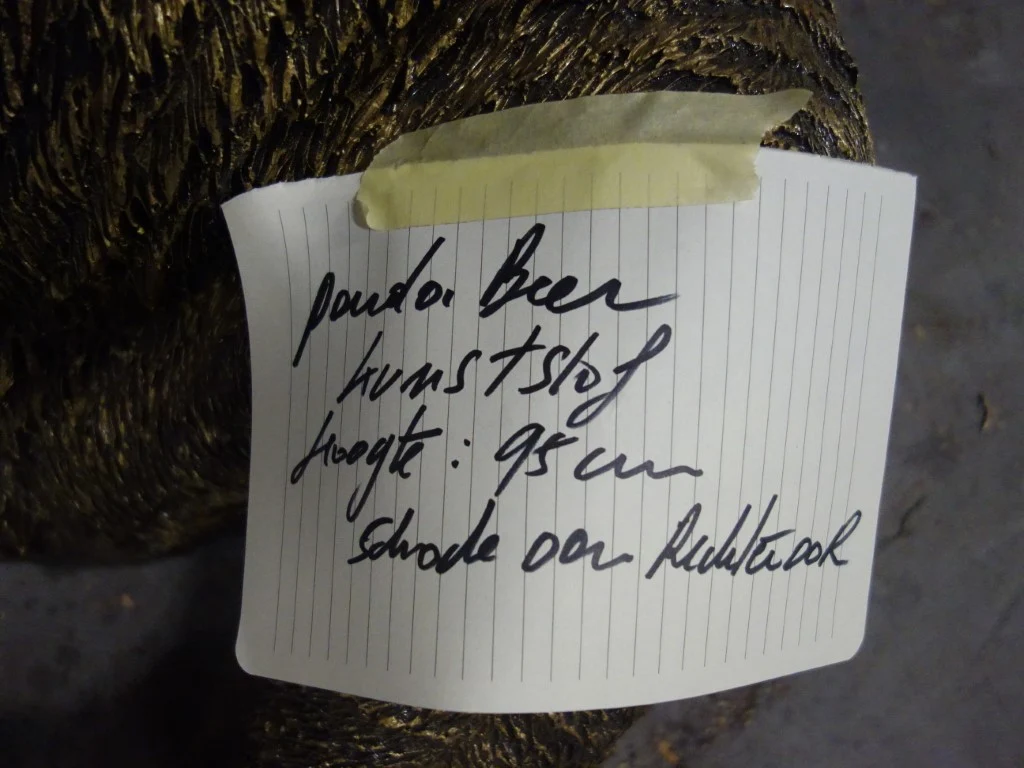 panda Beer
kunststof
Hoogte : 95 cm
schade aan Rechteroor